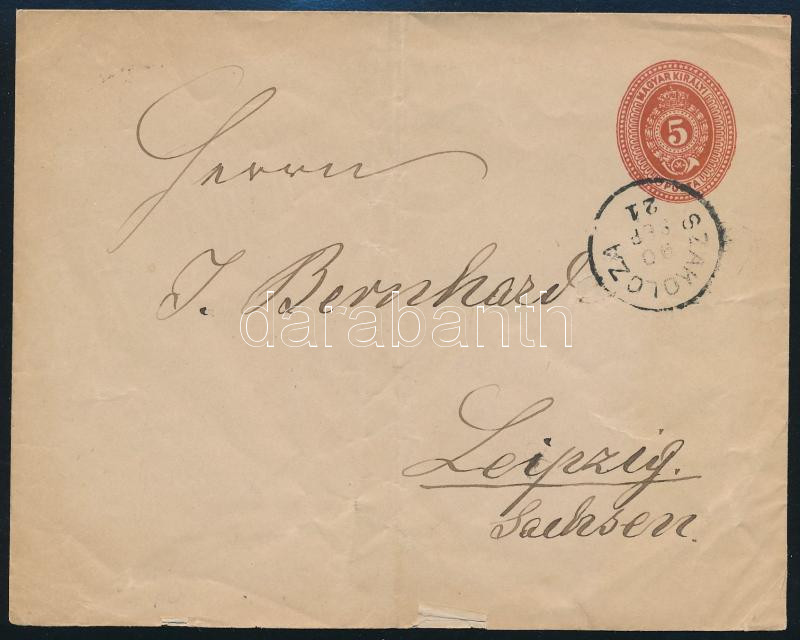 MAGYAR KIRÁLYI
5
POSTA
SZAKOLCZA
90
SEP
21
Herrn
J. Bernhard
darabanth
Leipzig.
Sachsen.